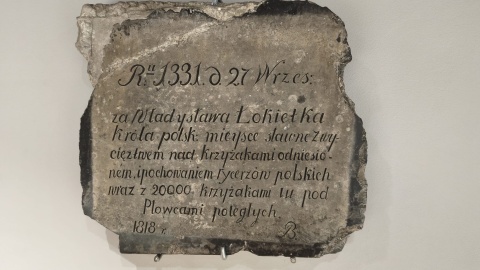 Rᵘ 1331. d. 27 Wrzes:
za Władysława Łokietka
króla polsk: mieysce sławne zwy
cięztwem nad krzyżakami odniesio-
nem, i pochowaniem Rycerzów polskich
wraz z 20000 krzyżakami tu pod
Płowcami poległych.
1818 r. B.